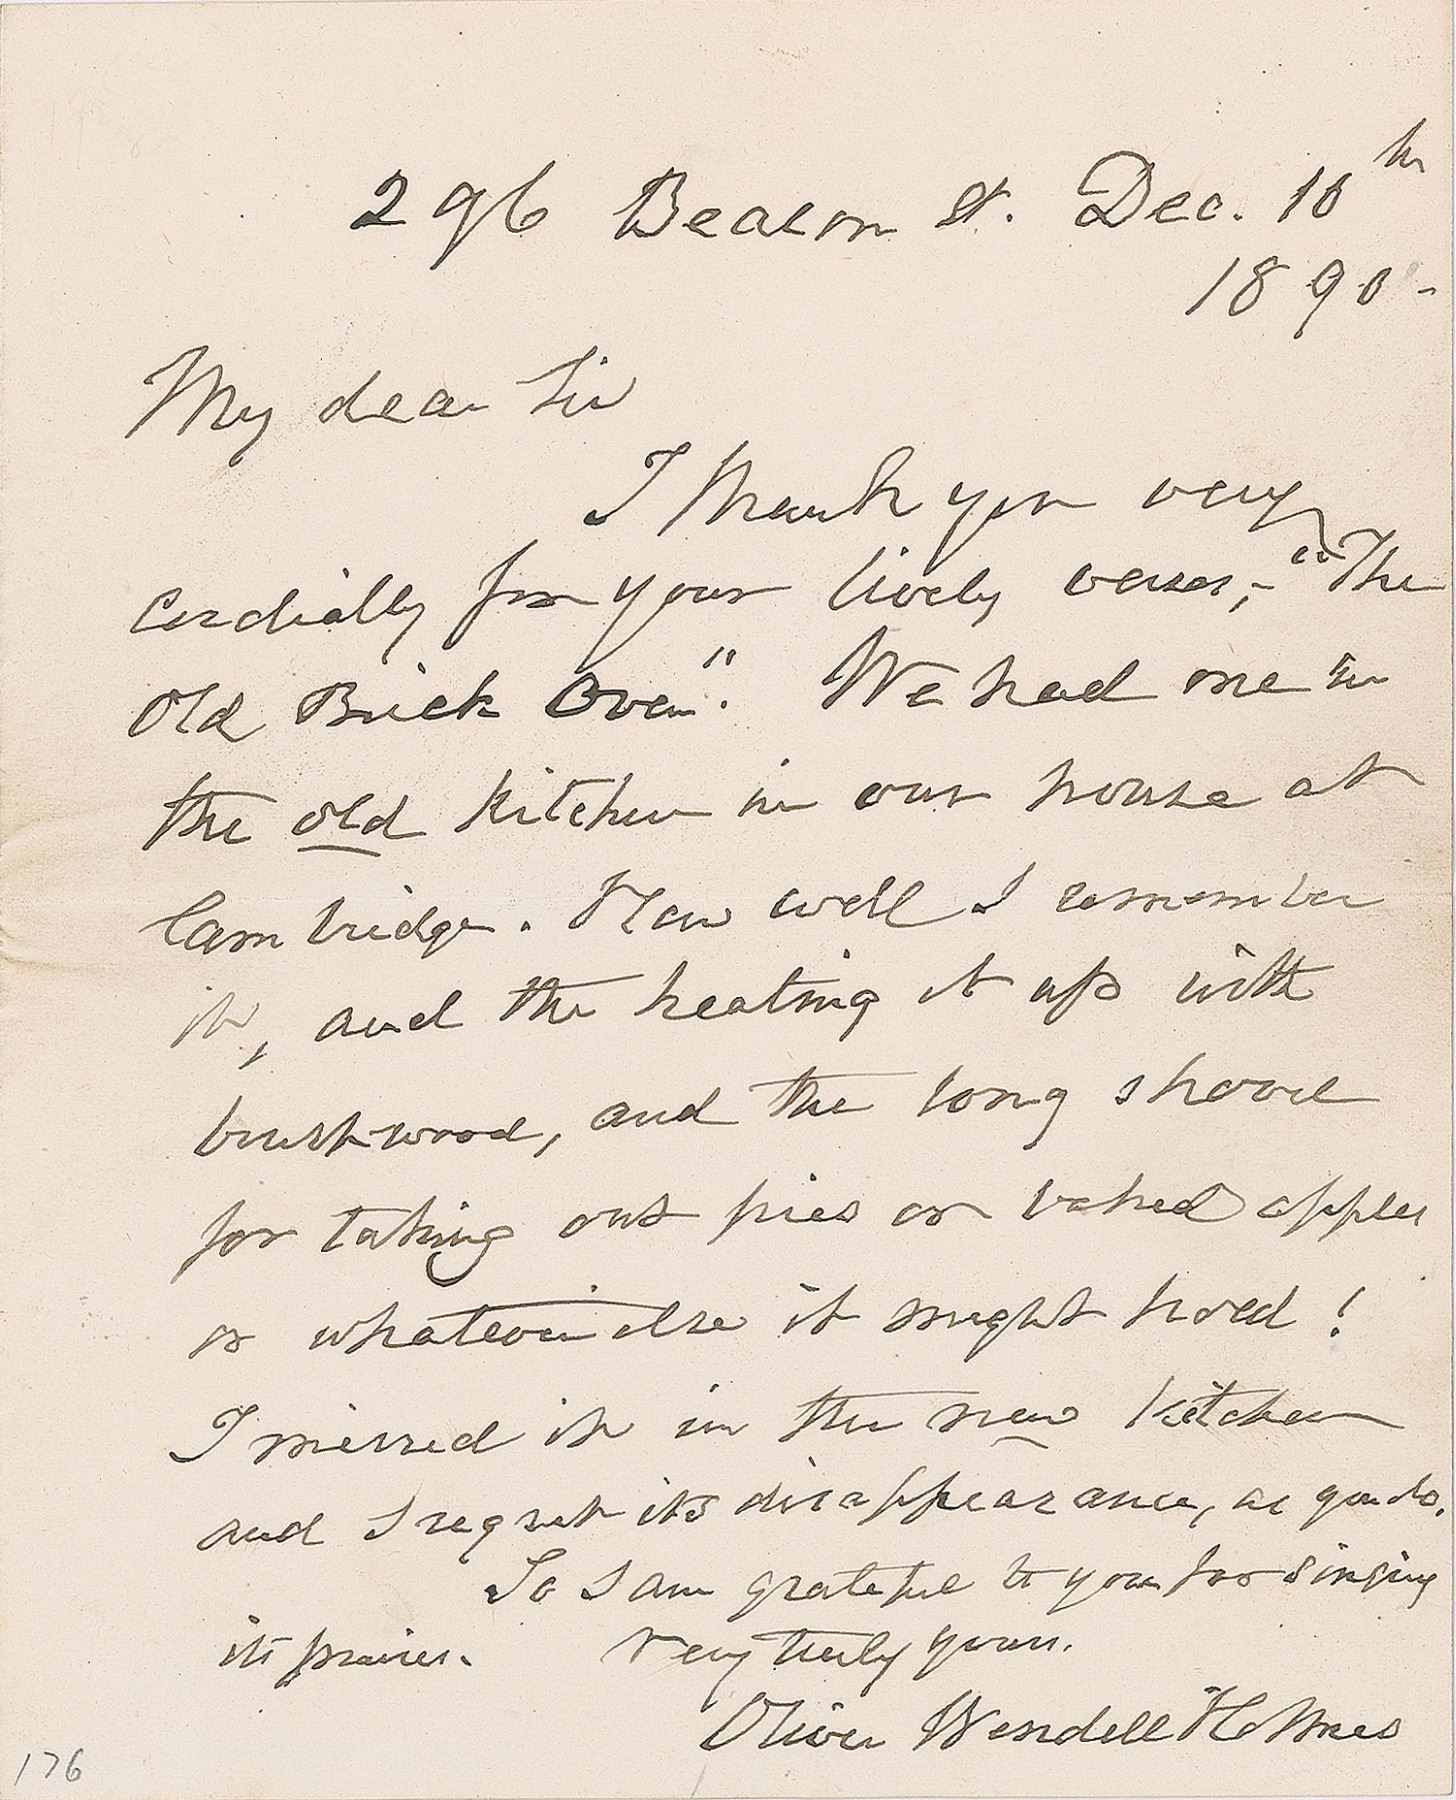 296 Beacon St. Dec. 10th
1890-
My dear Sir
I thank you very
cordially for your lively verses,- "The
Old Brick Oven". We had one in
the old kitchen in our house at
Cambridge. How well I remember
it, and the heating it up with
brushwood, and the long shovel
for taking out pies or baked apples
or whatever else it might hold!
I missed it in the new kitchen
and I regret its disappearance, as you do.
So I am grateful to you for singing
its praises. Very truly yours.
Oliver Wendell Holmes
176